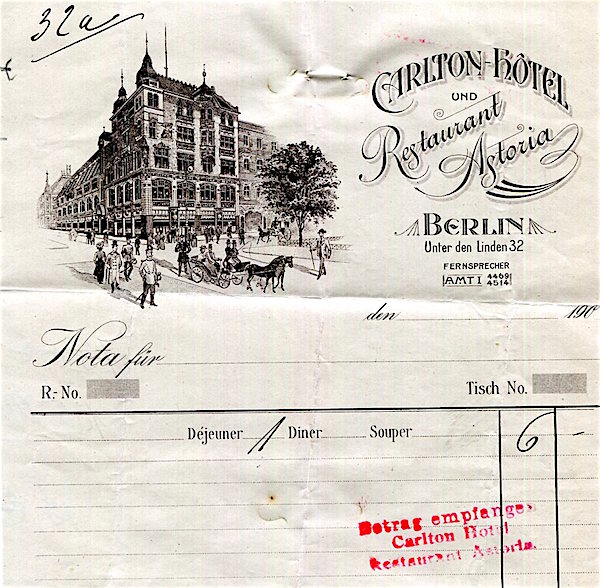 32a
CARLTON-HÔTEL
UND
Restaurant
Astoria
BERLIN
Unter den Linden 32
FERNSPRECHER
AMT I 4469
4514
den 190
Nota für
R.-No.
Tisch No.
Déjeuner 1 Diner Souper 6 -
Betrag empfangen
Carlton Hotel
Restaurant Astoria.